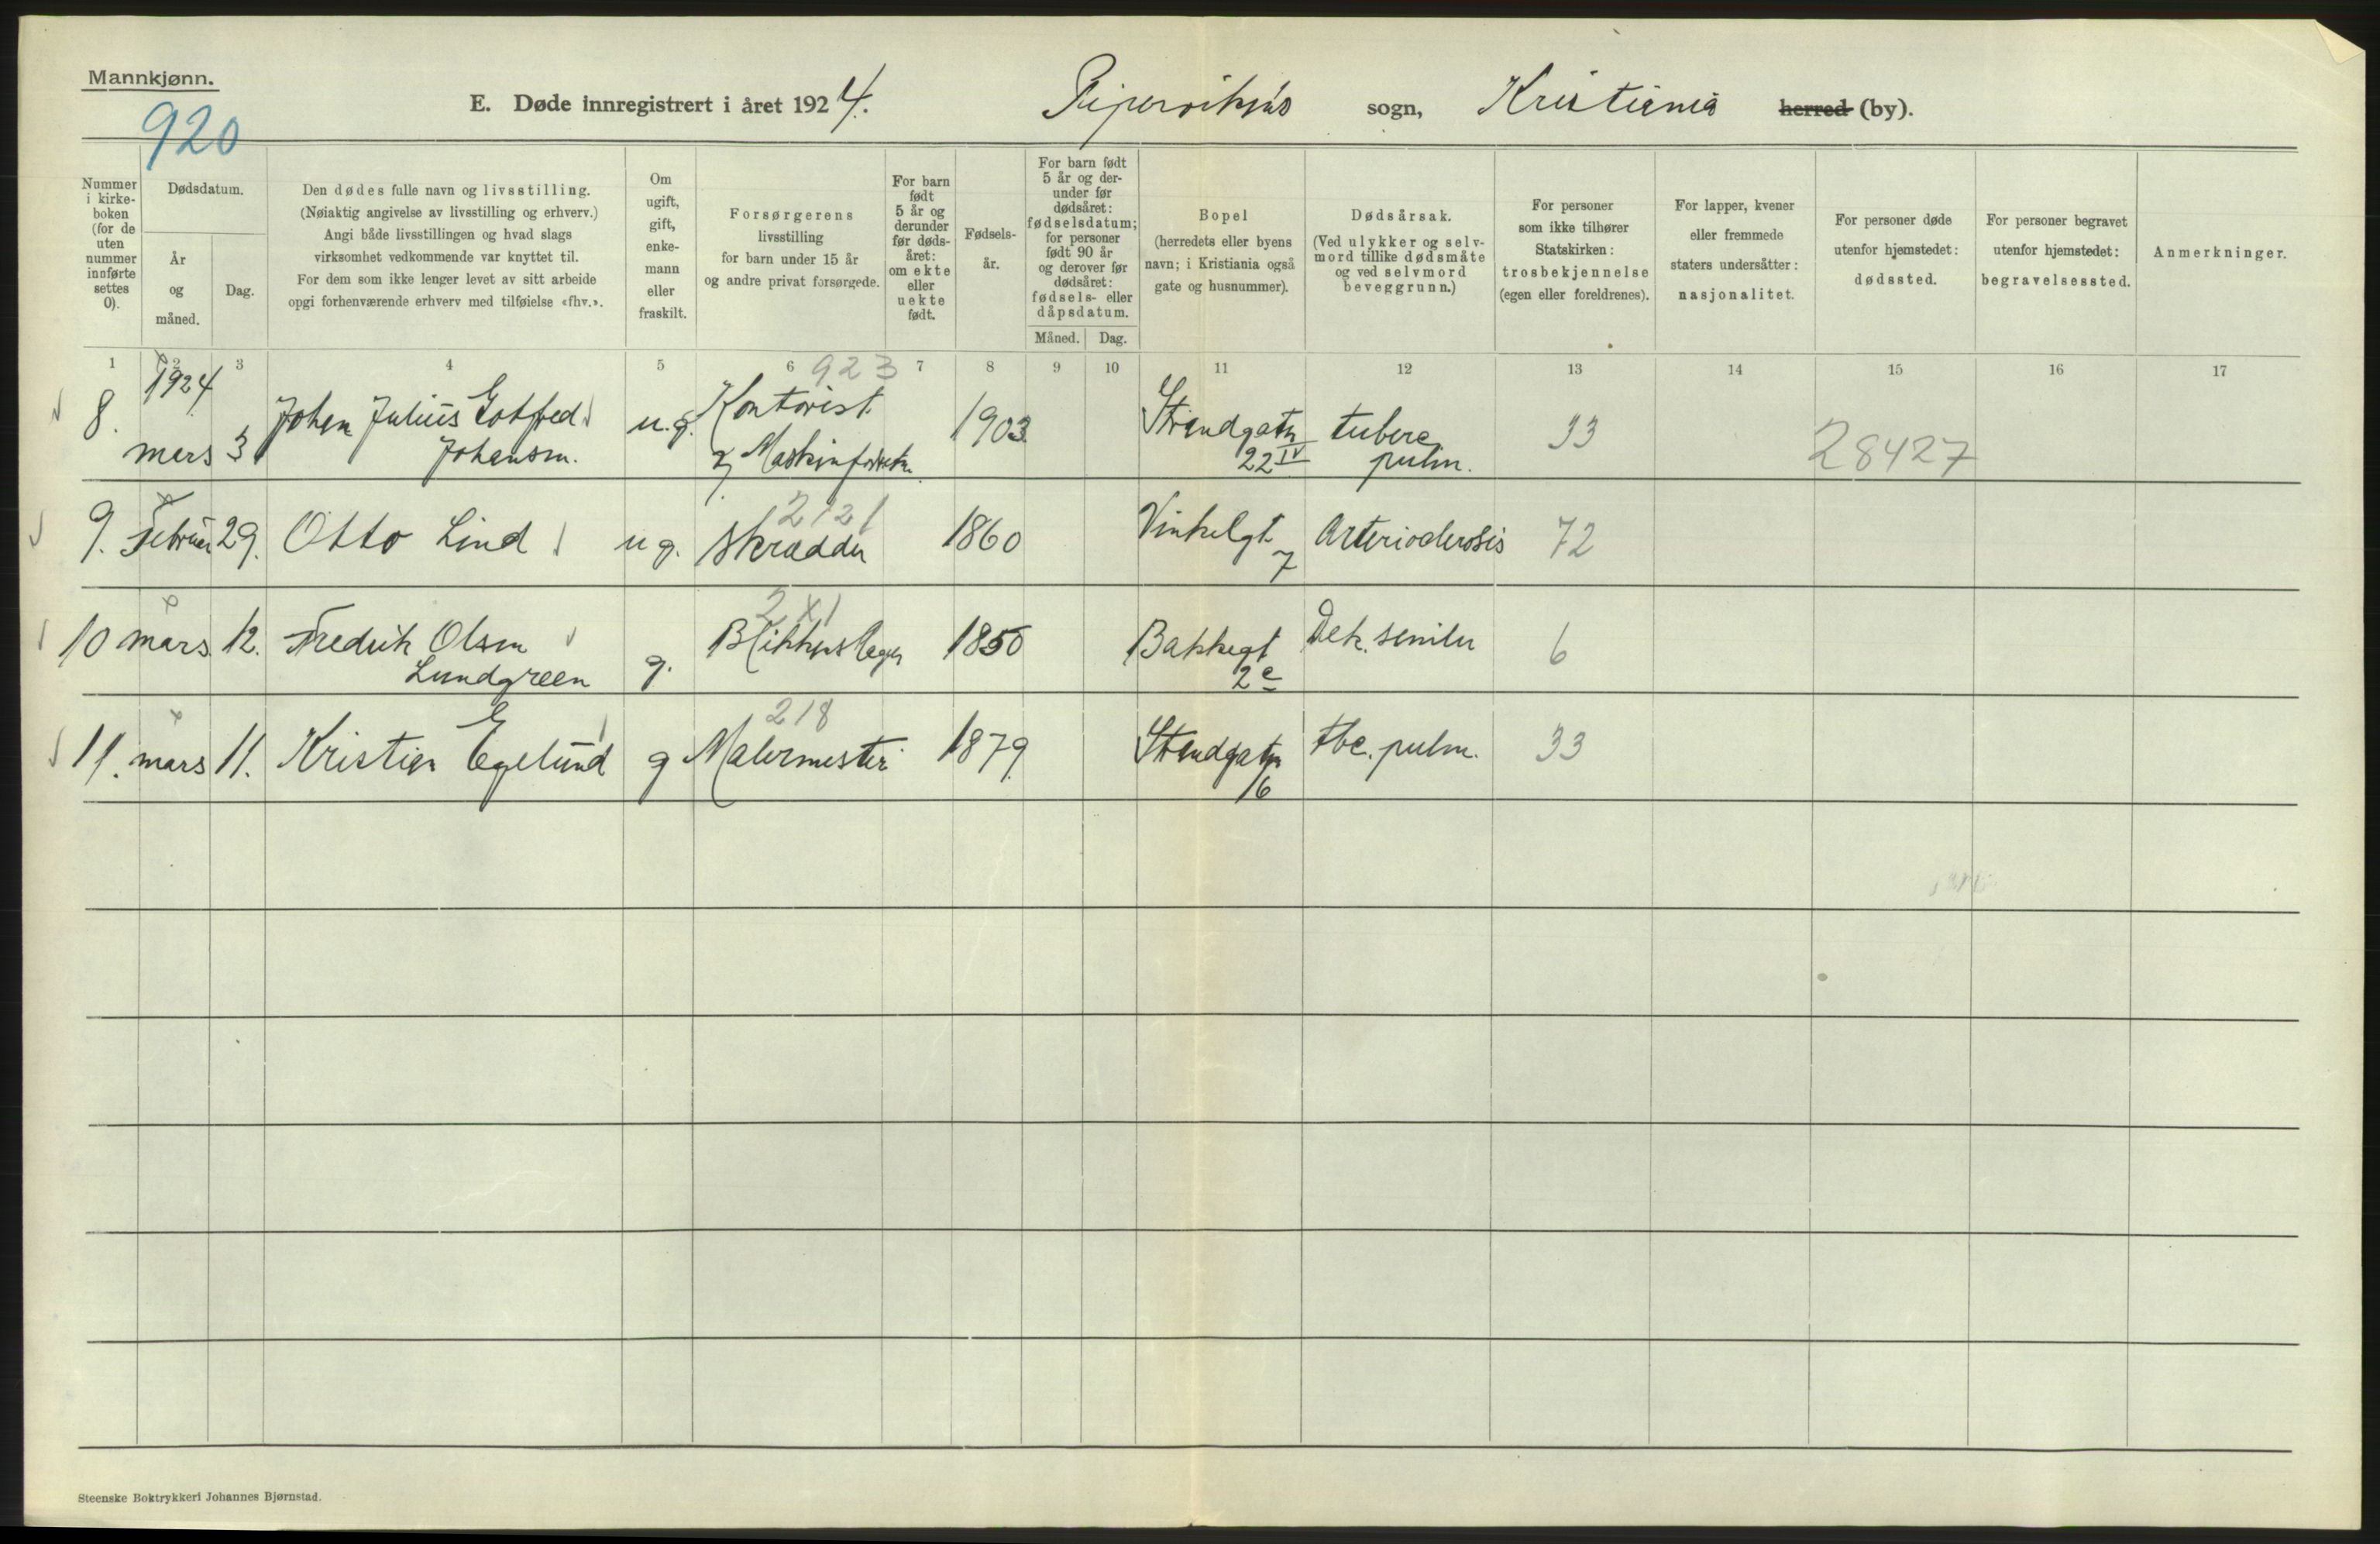 Mannkjønn.
920
E. Døde innregistrert i året 1924. Pipervikens sogn, Kristiania herred (by).
Nummer i kirkeboken (for de uten nummer innførte settes 0).
Dødsdatum.
År og måned.
Dag.
Den dødes fulle navn og livsstilling.
(Nøiaktig angivelse av livsstilling og erhverv.)
Angi både livsstillingen og hvad slags
virksomhet vedkommende var knyttet til.
For dem som ikke lenger levet av sitt arbeide
opgi forhenværende erhverv med tilføielse «fhv.».
Om ugift, gift, enkemann eller fraskilt.
Forsørgerens
livsstilling
for barn under 15 år
og andre privat forsørgede.
For barn født 5 år og derunder før dødsåret: om ekte eller uekte født.
Fødselsår.
For barn født 5 år og derunder før dødsåret: fødselsdatum; for personer født 90 år og derover før dødsåret: fødsels- eller dåpsdatum.
Måned. Dag.
Bopel
(herredets eller byens
navn; i Kristiania også
gate og husnummer).
Dødsårsak.
(Ved ulykker og selvmord tillike dødsmåte
og ved selvmord
beveggrunn.)
For personer
som ikke tilhører
Statskirken:
trosbekjennelse
(egen eller foreldrenes).
For lapper, kvener
eller fremmede
staters undersåtter:
nasjonalitet.
For personer døde
utenfor hjemstedet:
dødssted.
For personer begravet
utenfor hjemstedet:
begravelsessted.
Anmerkninger.
1 2 3 4 5 6 7 8 9 10 11 12 13 14 15 16 17
1924 923
8. mars 3. Johan Julius Gotfred u.g. Kontorist 1903 Strandgatn tuberc 33 28427
Johansen. Maskinforretn. 22 IV pulm.
2121
9. Februar 29. Otto Lind u g. Skrædder 1860 Vinkelgt. 7 Arteriosclerosis 72
2X1
10 mars. 12. Fredrik Olsen g. Blikkenslager 1850 Bakkegt Dek. senilis 6
Lundgreen 2c
218
11. mars 11. Kristian Egelund g Malermester 1879 Strandgatn tbc. pulm. 33
16
Steenske Boktrykkeri Johannes Bjørnstad.